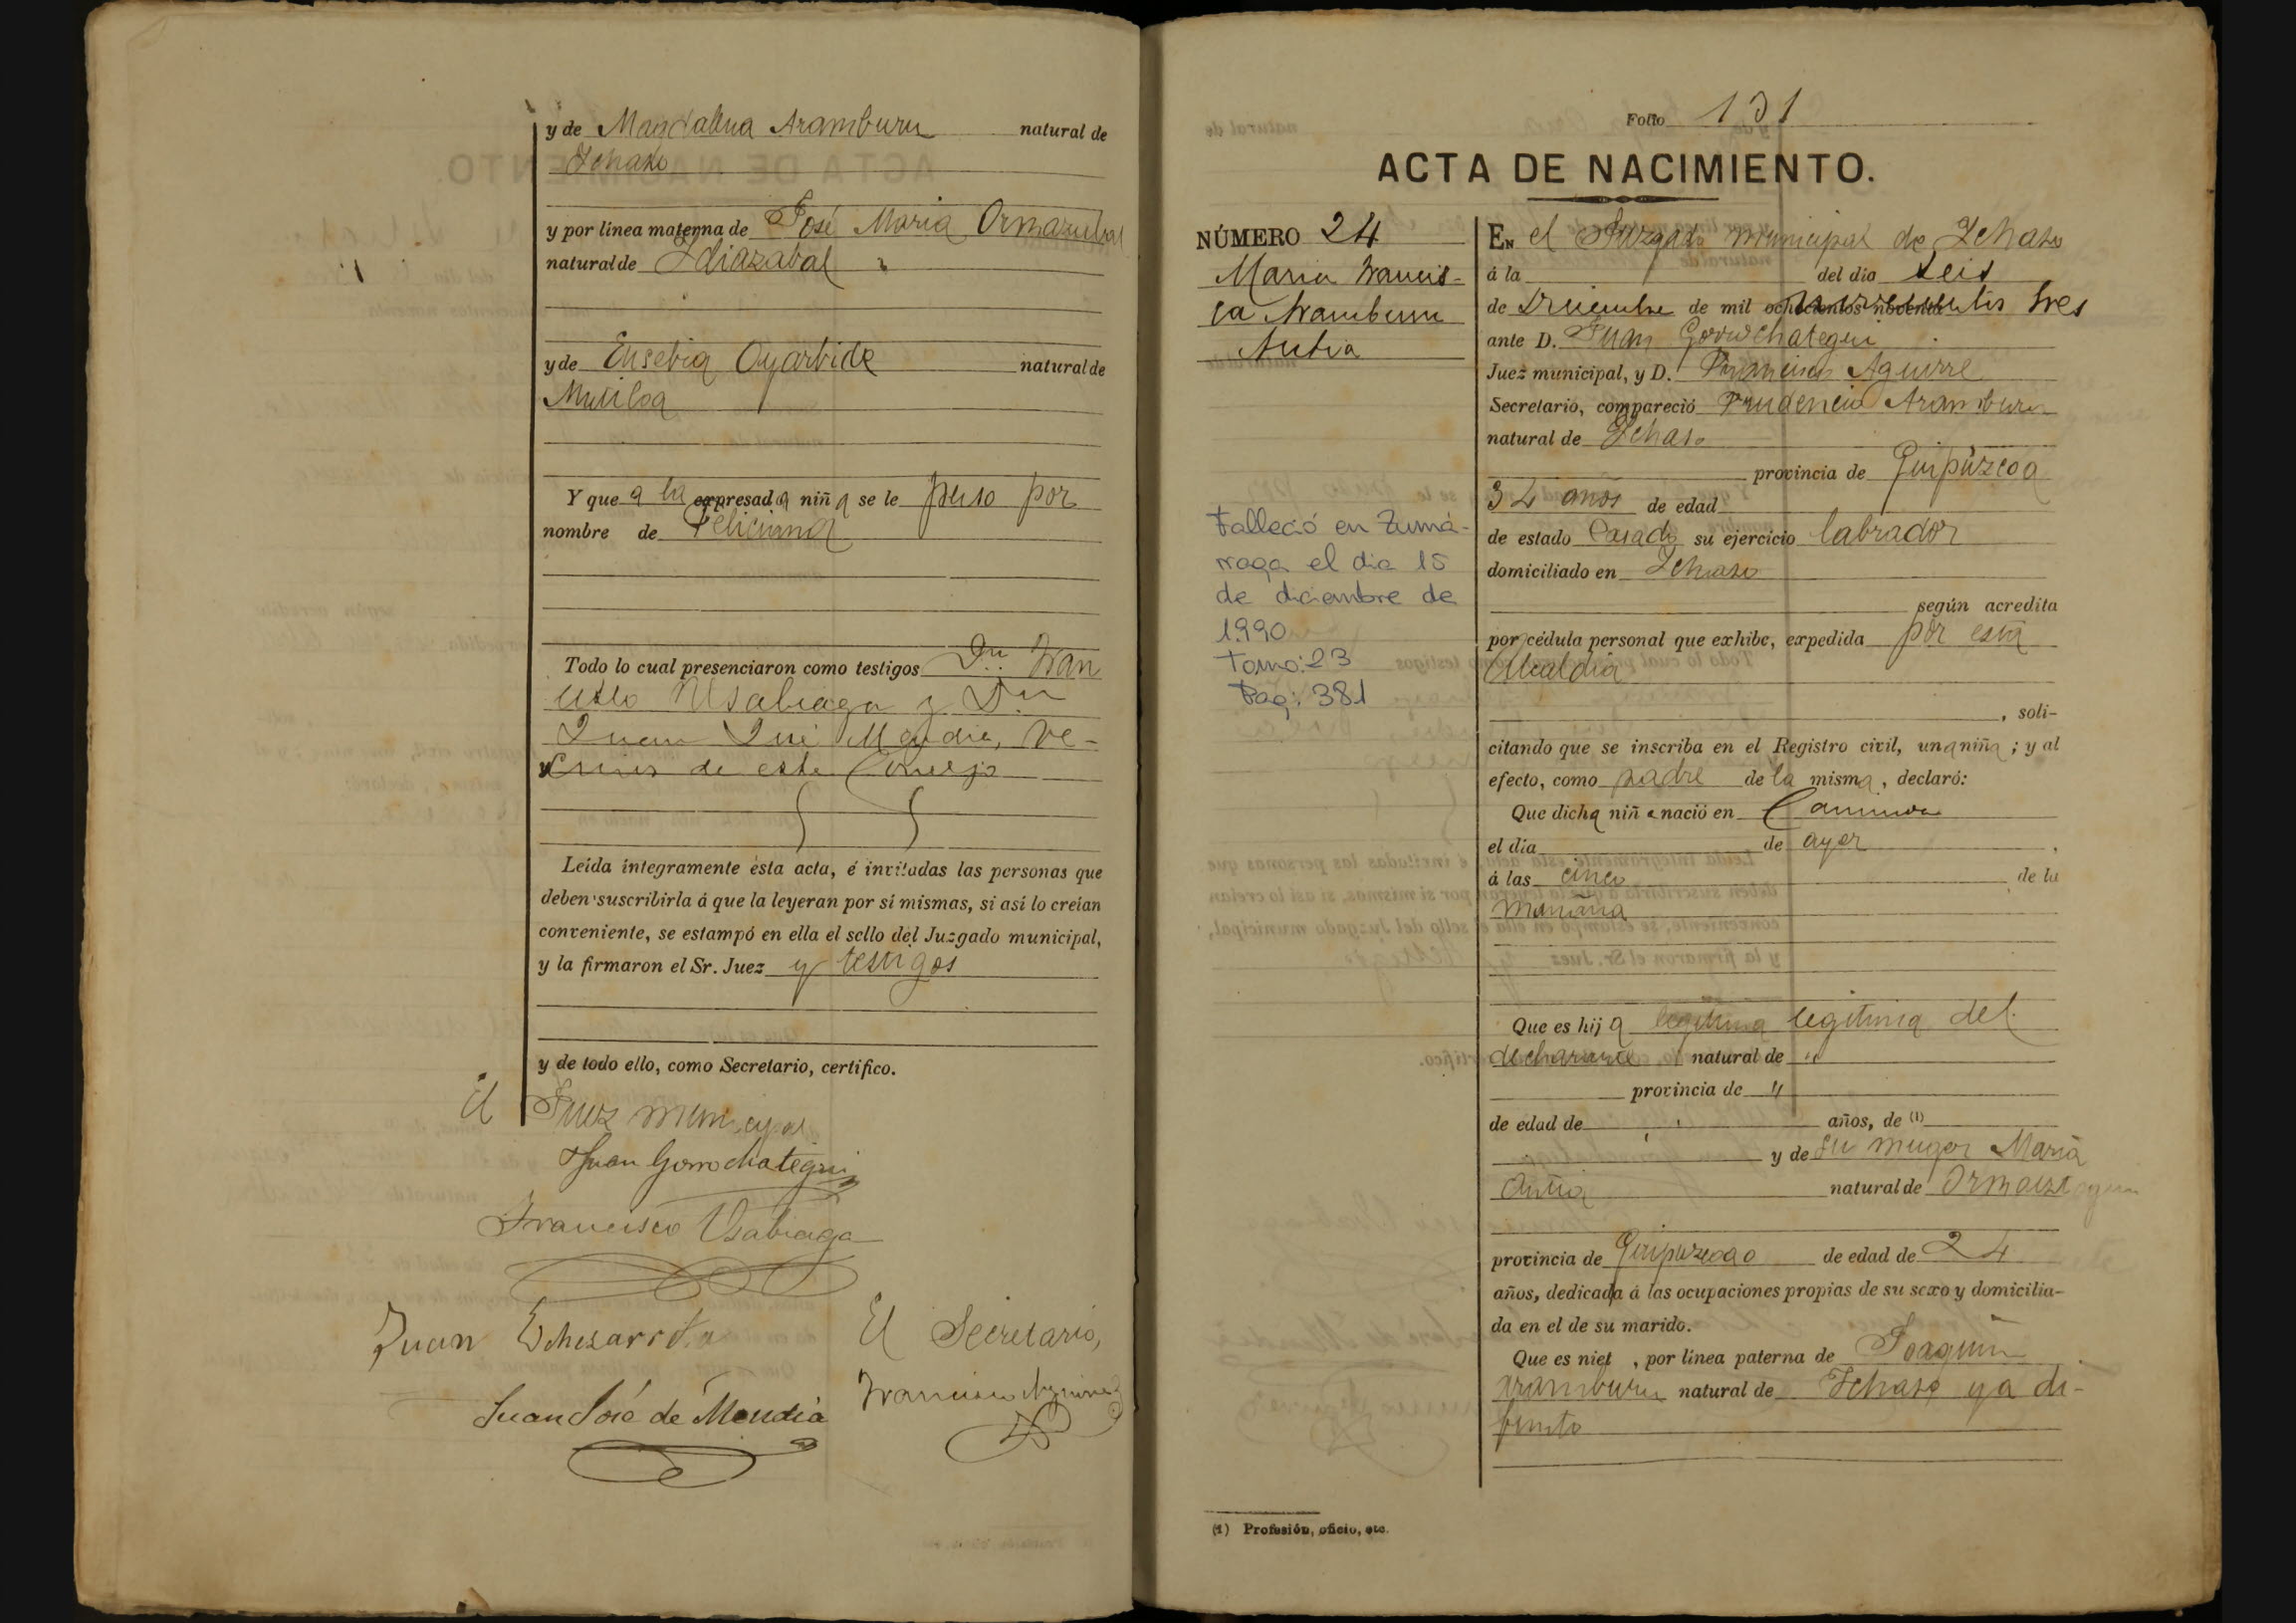 y de Magdalena Aramburu natural de
Ichaso
y por linea materna de José Maria Ormazabal
natural de Idiazabal
y de Eusebia Oyarbide natural de
Mutiloa
Y que a la expresada niña se le puso por
nombre de Feliciana
Todo lo cual presenciaron como testigos Dn Fran
cisco Usabiaga y Dn
Juan José Mendia, ve-
cinos de este Concejo
Leída íntegramente esta acta, é invitadas las personas que
deben suscribirla á que la leyeran por sí mismas, si así lo creían
conveniente, se estampó en ella el sello del Juzgado municipal,
y la firmaron el Sr. Juez y testigos
y de todo ello, como Secretario, certifico.
El Juez municipal
Juan Gorrochategui
Francisco Usabiaga
Juan Echezarreta
El Secretario,
Francisco Aguirre
Juan José de Mendia
Folio 131
ACTA DE NACIMIENTO.
NÚMERO 24
Maria Francis-
ca Aramburu
Antia
Falleció en Zumá-
rraga el dia 15
de diciembre de
1990
Tomo: 23
Pag: 381
En el Juzgado municipal de Ichaso
á la del día seis
de Diciembre de mil ochocientos noventa tres
ante D. Juan Gorrochategui
Juez municipal, y D. Francisco Aguirre
Secretario, compareció Prudencio Aramburu
natural de Ichaso
provincia de Guipúzcoa
34 años de edad
de estado Casado su ejercicio labrador
domiciliado en Ichaso
según acredita
por cédula personal que exhibe, expedida por esta
Alcaldia
, soli-
citando que se inscriba en el Registro civil, una niña ; y al
efecto, como padre de la misma , declaró:
Que dicha niña nació en
el día de ayer
á las cinco de la
mañana
Que es hija legitima legitima del
declarante natural de "
provincia de "
de edad de años, de (1)
y de su muger Maria
Antia natural de Ormaiztegui
provincia de Guipuzcoa de edad de 24
años, dedicada á las ocupaciones propias de su sexo y domicilia-
da en el de su marido.
Que es niet , por linea paterna de Joaquin
Aramburu natural de Ichaso ya di-
funto
(1) Profesión, oficio, etc.